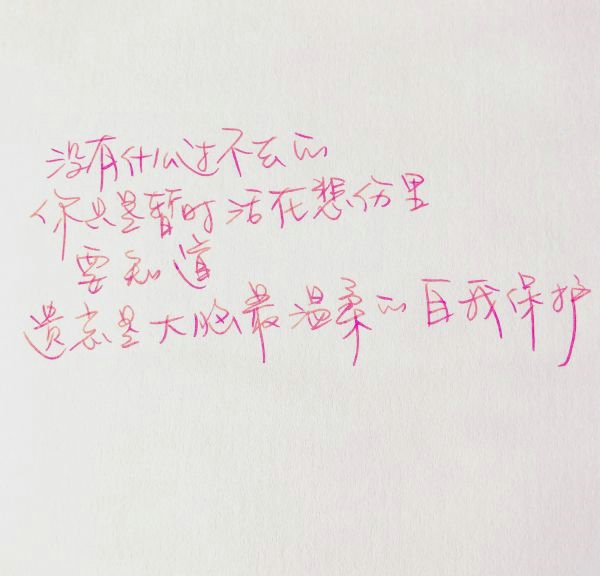 没有什么过不去的
你只是暂时活在悲伤里
要知道
遗忘是大脑最温柔的自我保护